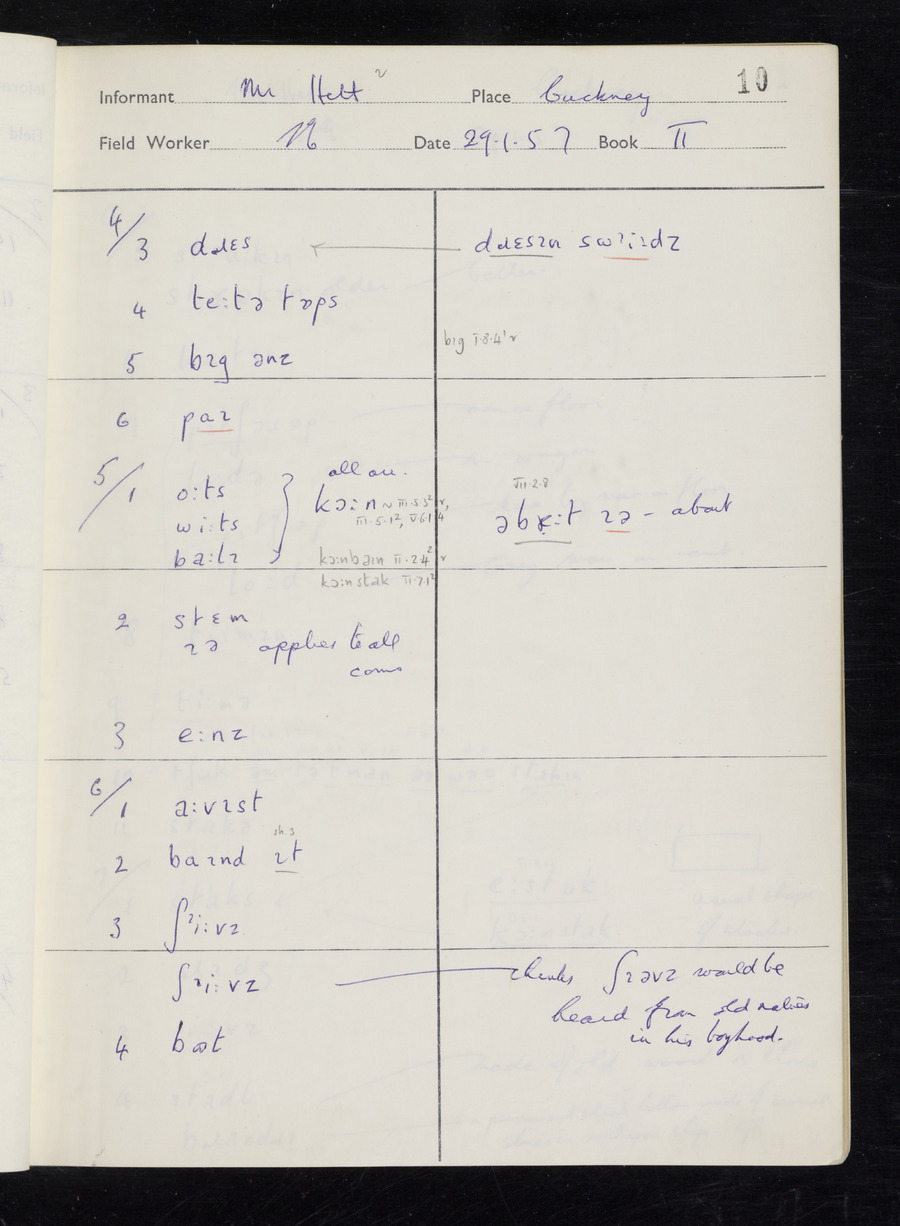 10
Informant Mr Place Cuckney
Field Worker Date 29.1.57 Book II
4/3 dɹɛs dɹɛsɪn swɪi:dz
4 te:tə tɒps
5 bɪg ənz bɪg I.8.4¹v
6 paɪ
5/1 o:ts all are.
wi:ts kɔ:n ~ III.5.3²v, III.5.1², V.6.1⁴
ba:lɪ
VII.2.8
əb:t ɪə - about
kɔ:nbaɪn II.2.4²v
kɔ:nstak II.7.1²
2 stɛm
ɪə applies to all
corns
3 e:nz
6/1 a:vɪst
sh.s
2 baɪnd ɪt
3 ʃɪi:vz
ʃɪi:vz thinks ʃɪəvz would be
heard from old natives
in his boyhood.
4 bʊt